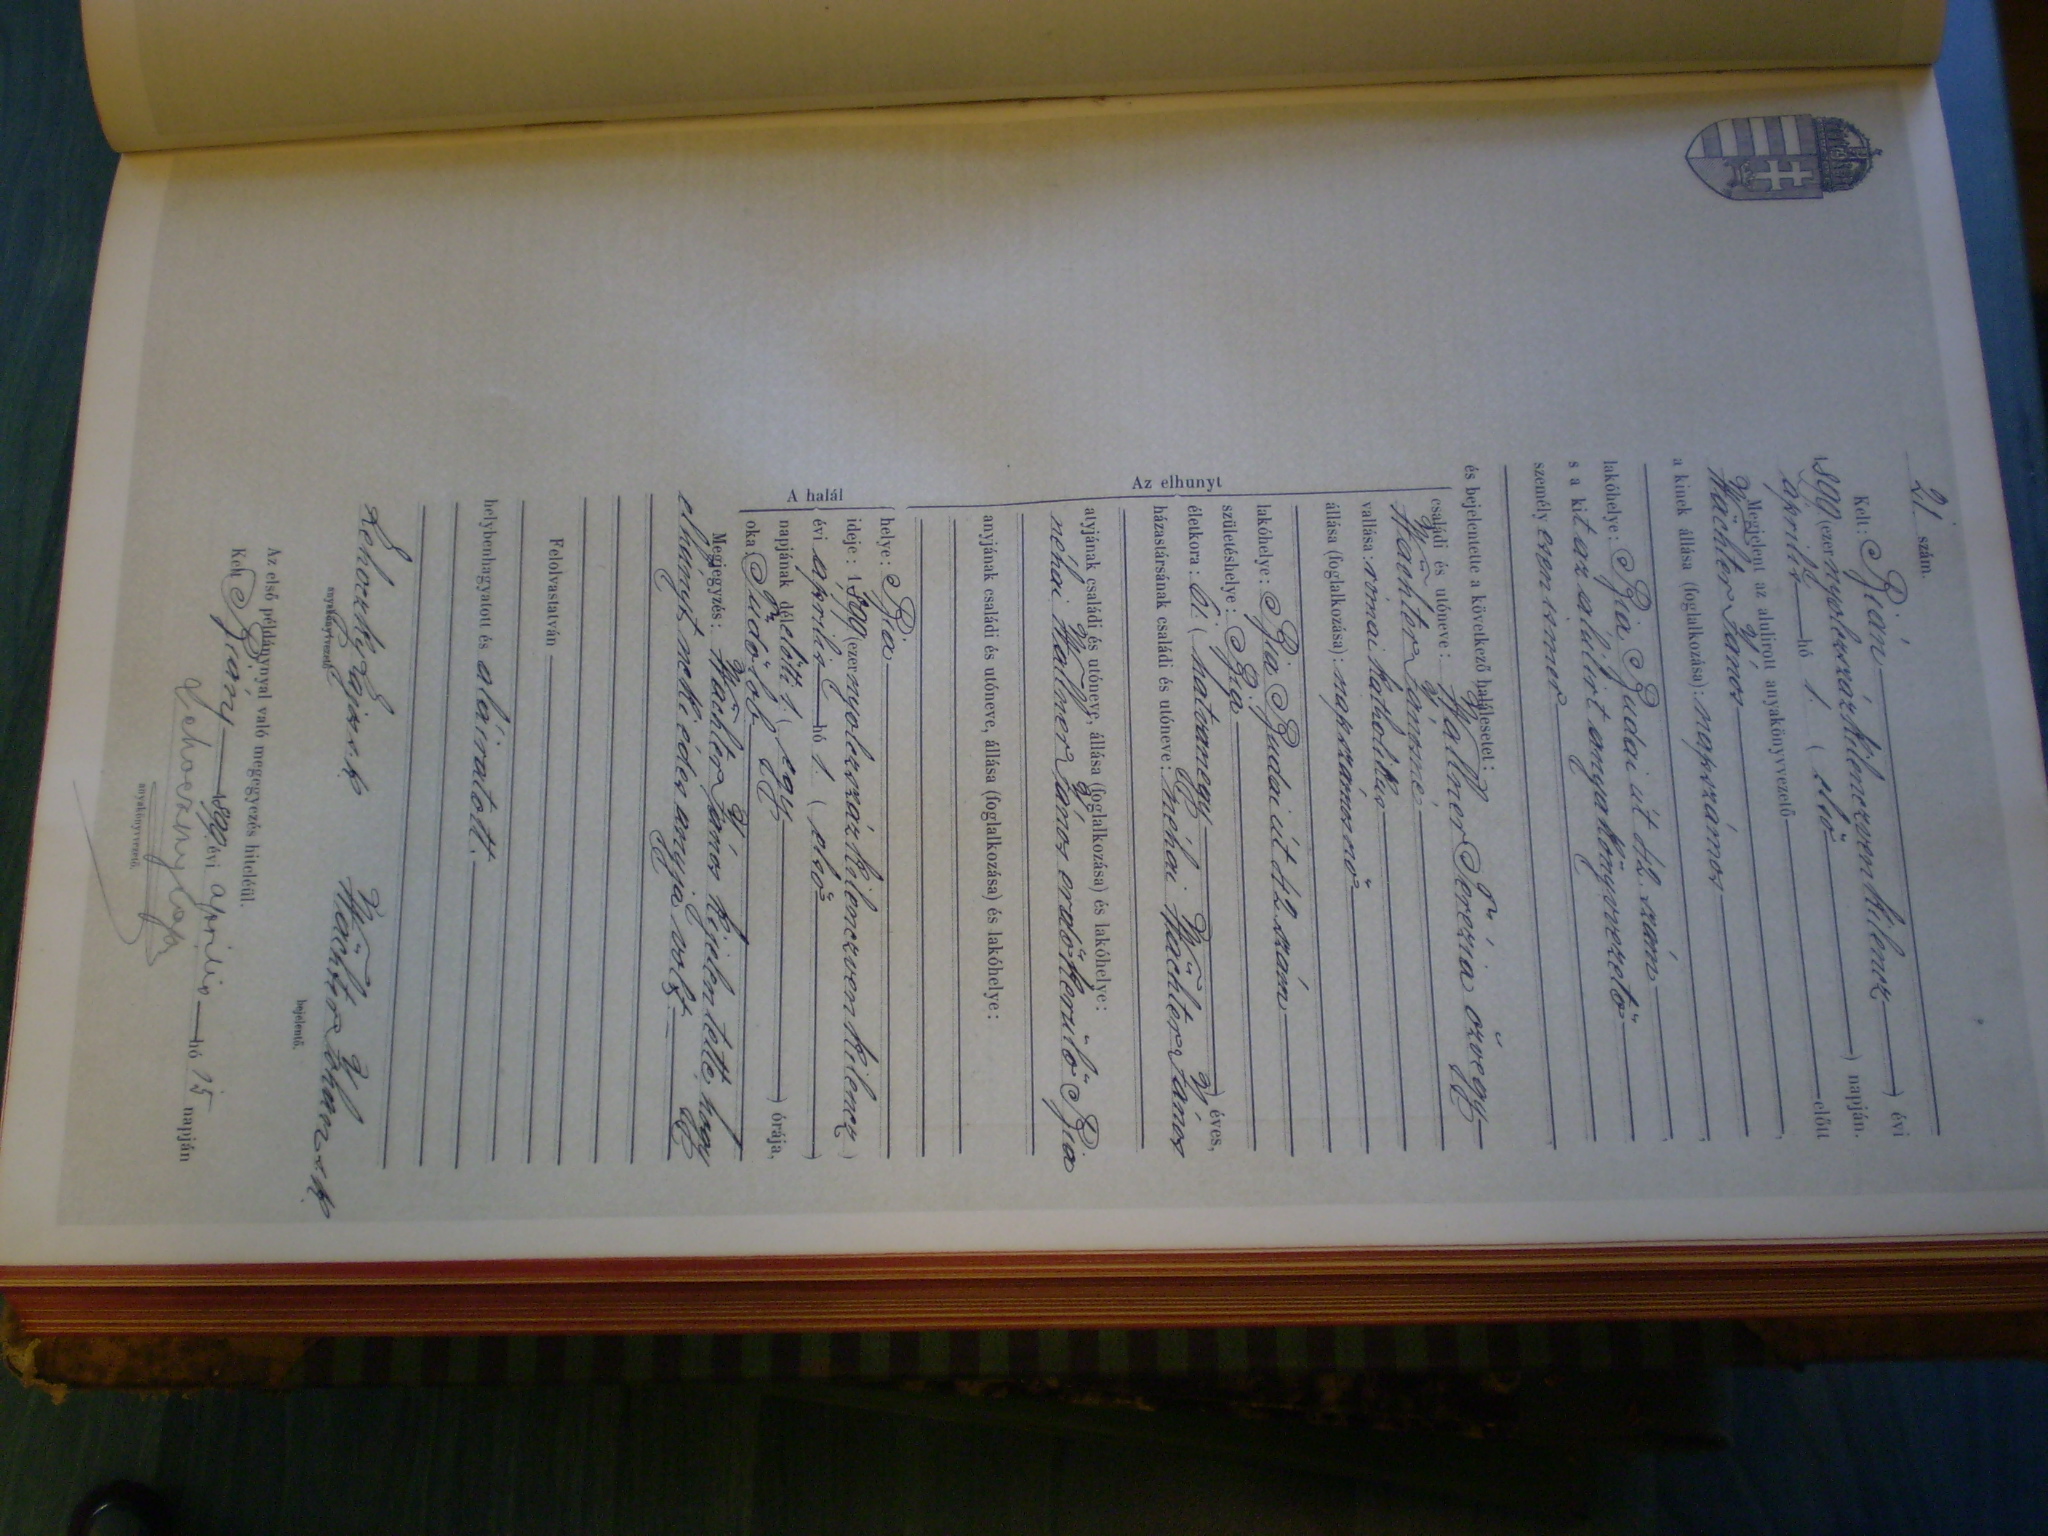 21. szám.
Kelt: Bián 1899 (ezernyolczszázkilenczvenkilencz) évi
április hó 1. (első) napján.
Megjelent az alulirott anyakönyvvezető előtt
Wächter János,
a kinek állása (foglalkozása): napszámos,
lakóhelye: Bia Budai út 42. szám,
s a kit az alulirt anyakönyvvezető
személyesen ismer
és bejelentette a következő halálesetet:
Az elhunyt
családi és utóneve: Hallner Terézia özvegy
Wächter Jánosné
vallása: római katholikus
állása (foglalkozása): napszámosnő
lakóhelye: Bia Budai út 42. szám
születéshelye: Bia
életkora: 61. (hatvanegy) éves,
házastársának családi és utóneve: néhai Wächter János
atyjának családi és utóneve, állása (foglalkozása) és lakóhelye:
néhai Hallner János erdőkerülő Bia
anyjának családi és utóneve, állása (foglalkozása) és lakóhelye:
A halál
helye: Bia
ideje: 1899 (ezernyolczszázkilenczvenkilencz)
évi április hó 1. (első)
napjának délelőtti 1 (egy) órája,
oka: Tüdőlob
Megjegyzés: Wächter János kijelentette, hogy
elhúnyt neki édes anyja volt.
Felolvastatván
helybenhagyatott és aláiratott.
anyakönyvvezető
bejelentő.
Az első példánynyal való megegyezés hiteléül.
Kelt Biány 1899 évi április hó 15 napján
anyakönyvvezető.